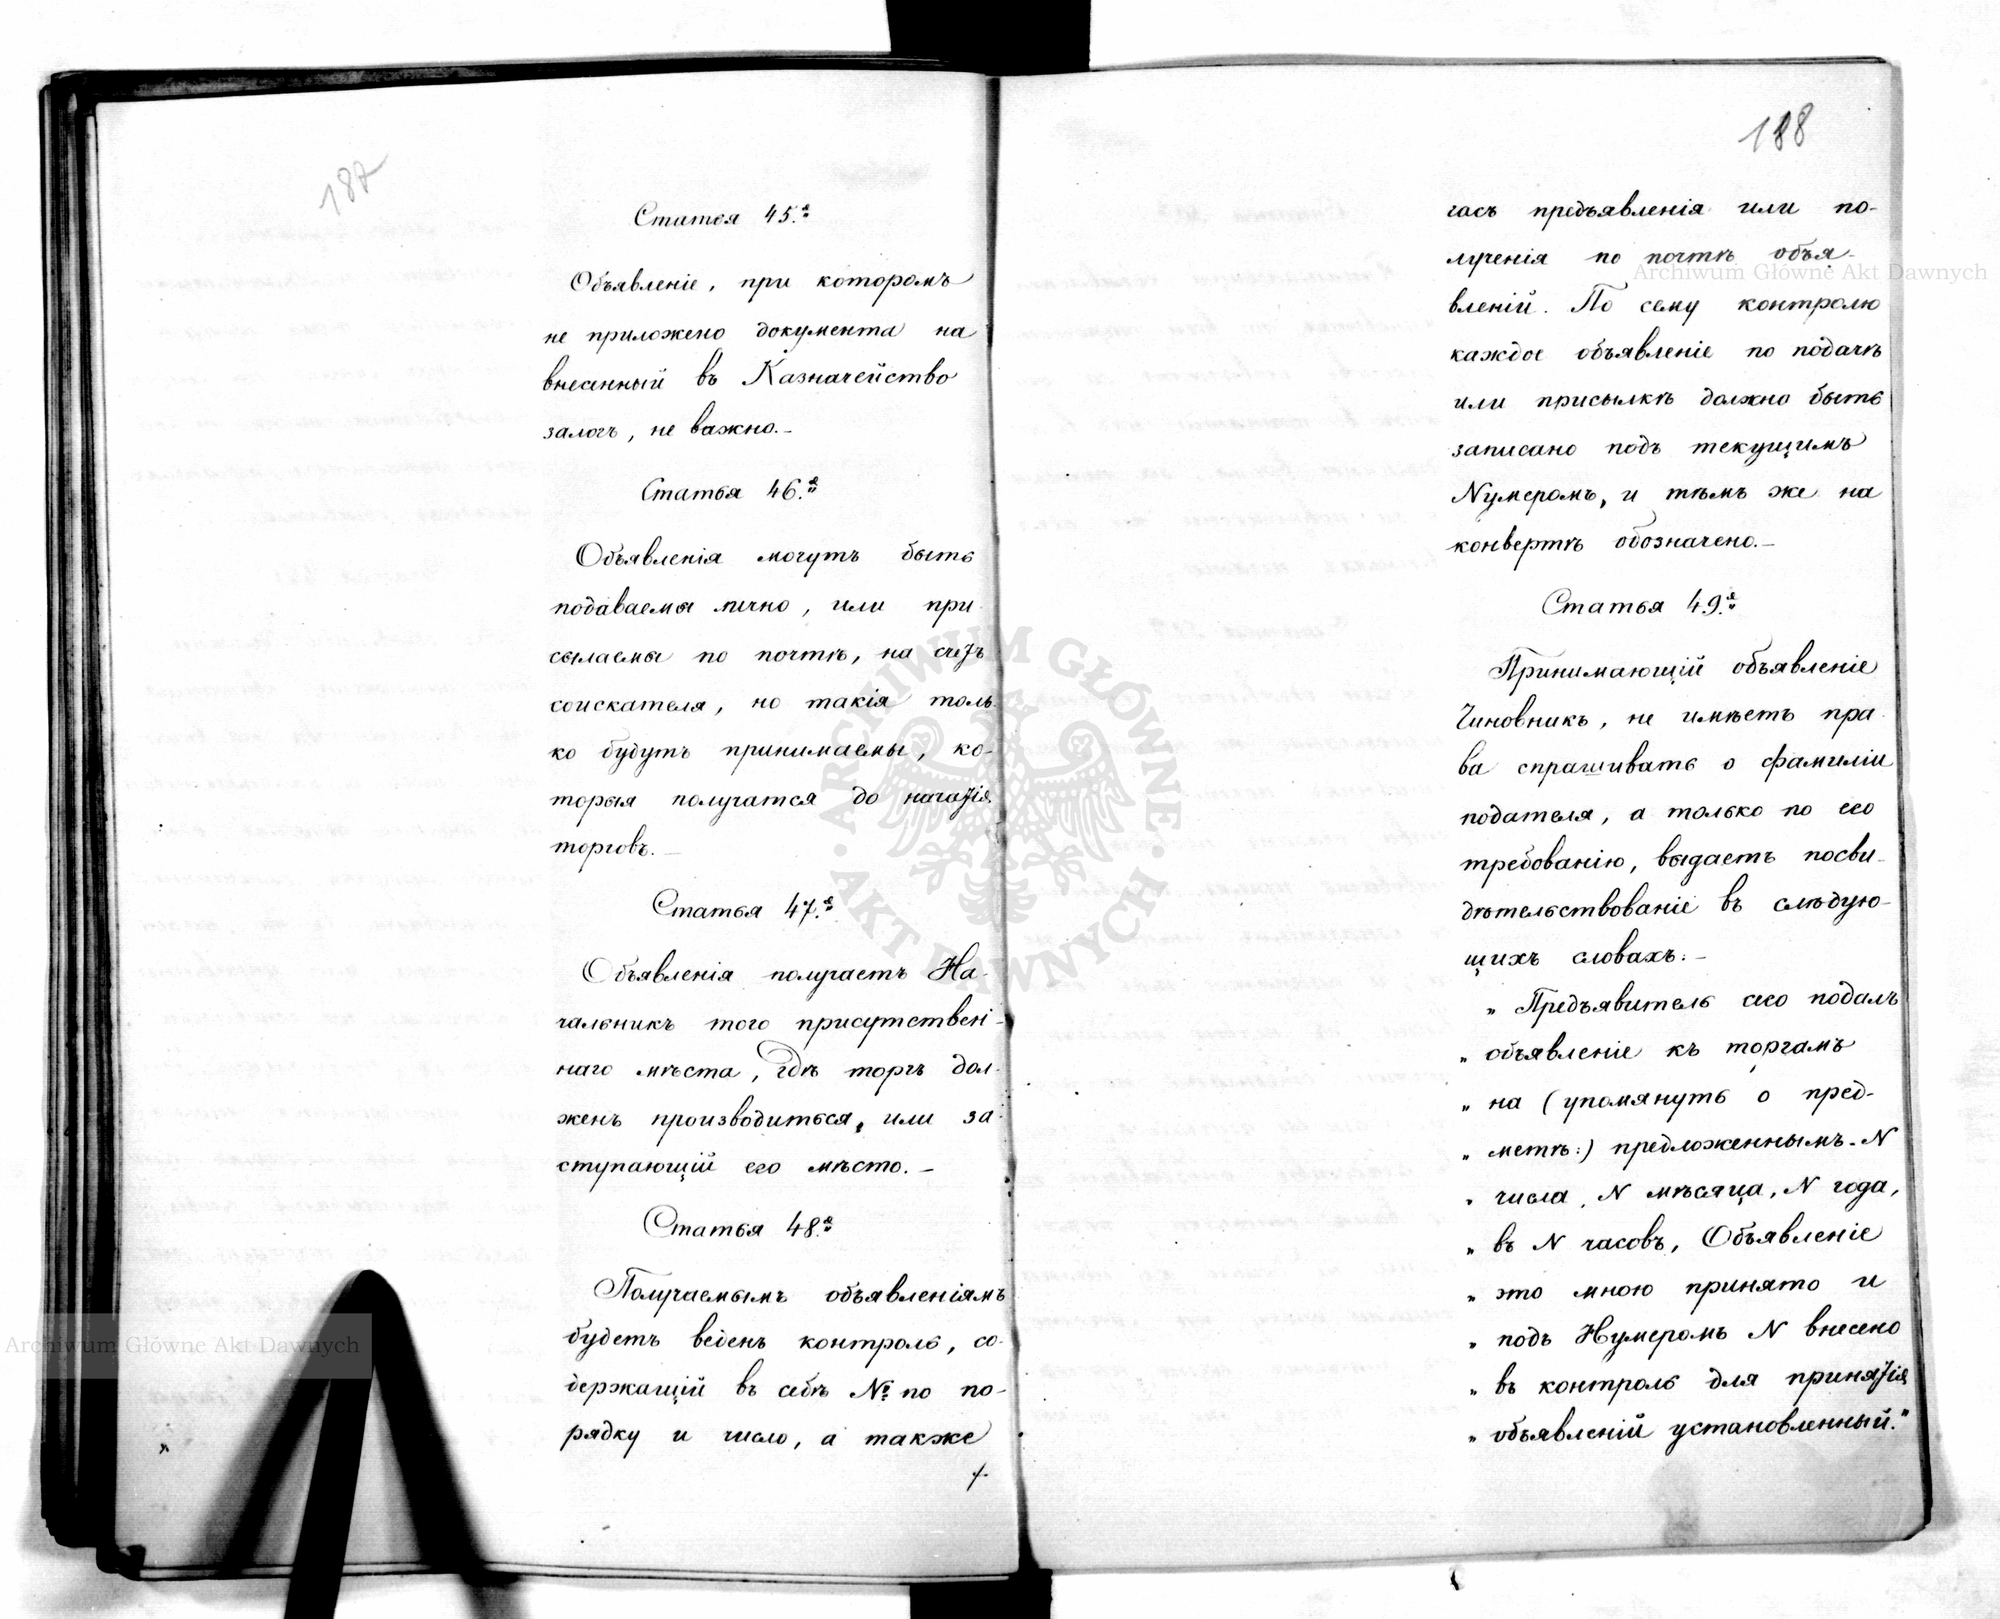 187
Статья 45.я
Объявленіе, при которомъ
не приложено документа на
внесенный въ Казначейство
залогъ, не важно.—
Статья 46.я
Объявленія могутъ быть
подаваемы лично, или при-
сылаемы по почтѣ, на счетъ
соискателя, но такія толь-
ко будутъ принимаемы, ко-
торыя получатся до начатія
торговъ.—
Статья 47.я
Объявленія получаетъ На-
чальникъ того присутствен-
наго мѣста, гдѣ торгъ дол-
женъ производиться, или за-
ступающій его мѣсто.—
Статья 48.я
Получаемымъ объявленіямъ
будетъ веденъ контроль, со-
держащій въ себѣ № по по-
рядку и число, а также
188
часъ предъявленія или по-
лученія по почтѣ объя-
вленій. По сему контролю
каждое объявленіе по подачѣ
или присылкѣ должно быть
записано подъ текущимъ
Nумеромъ, и тѣмъ же на
конвертѣ обозначено.—
Статья 49.я
Принимающій объявленіе
Чиновникъ, не имѣетъ пра-
ва спрашивать о фамиліи
подателя, а только по его
требованію, выдаетъ посви-
дѣтельствованіе въ слѣдую-
щихъ словахъ:—
„ Предъявитель сего подалъ
„ объявленіе къ торгамъ
„ на (упомянуть о пред-
„ метѣ:) предложеннымъ N
„ числа, N мѣсяца, N года,
„ въ N часовъ, Объявленіе
„ это мною принято и
„ подъ Нумеромъ N внесено
„ въ контроль для принятія
„ объявленій установленный."
Archiwum Główne Akt Dawnych
Archiwum Główne Akt Dawnych
ARCHIWUM GŁÓWNE · AKT DAWNYCH ·